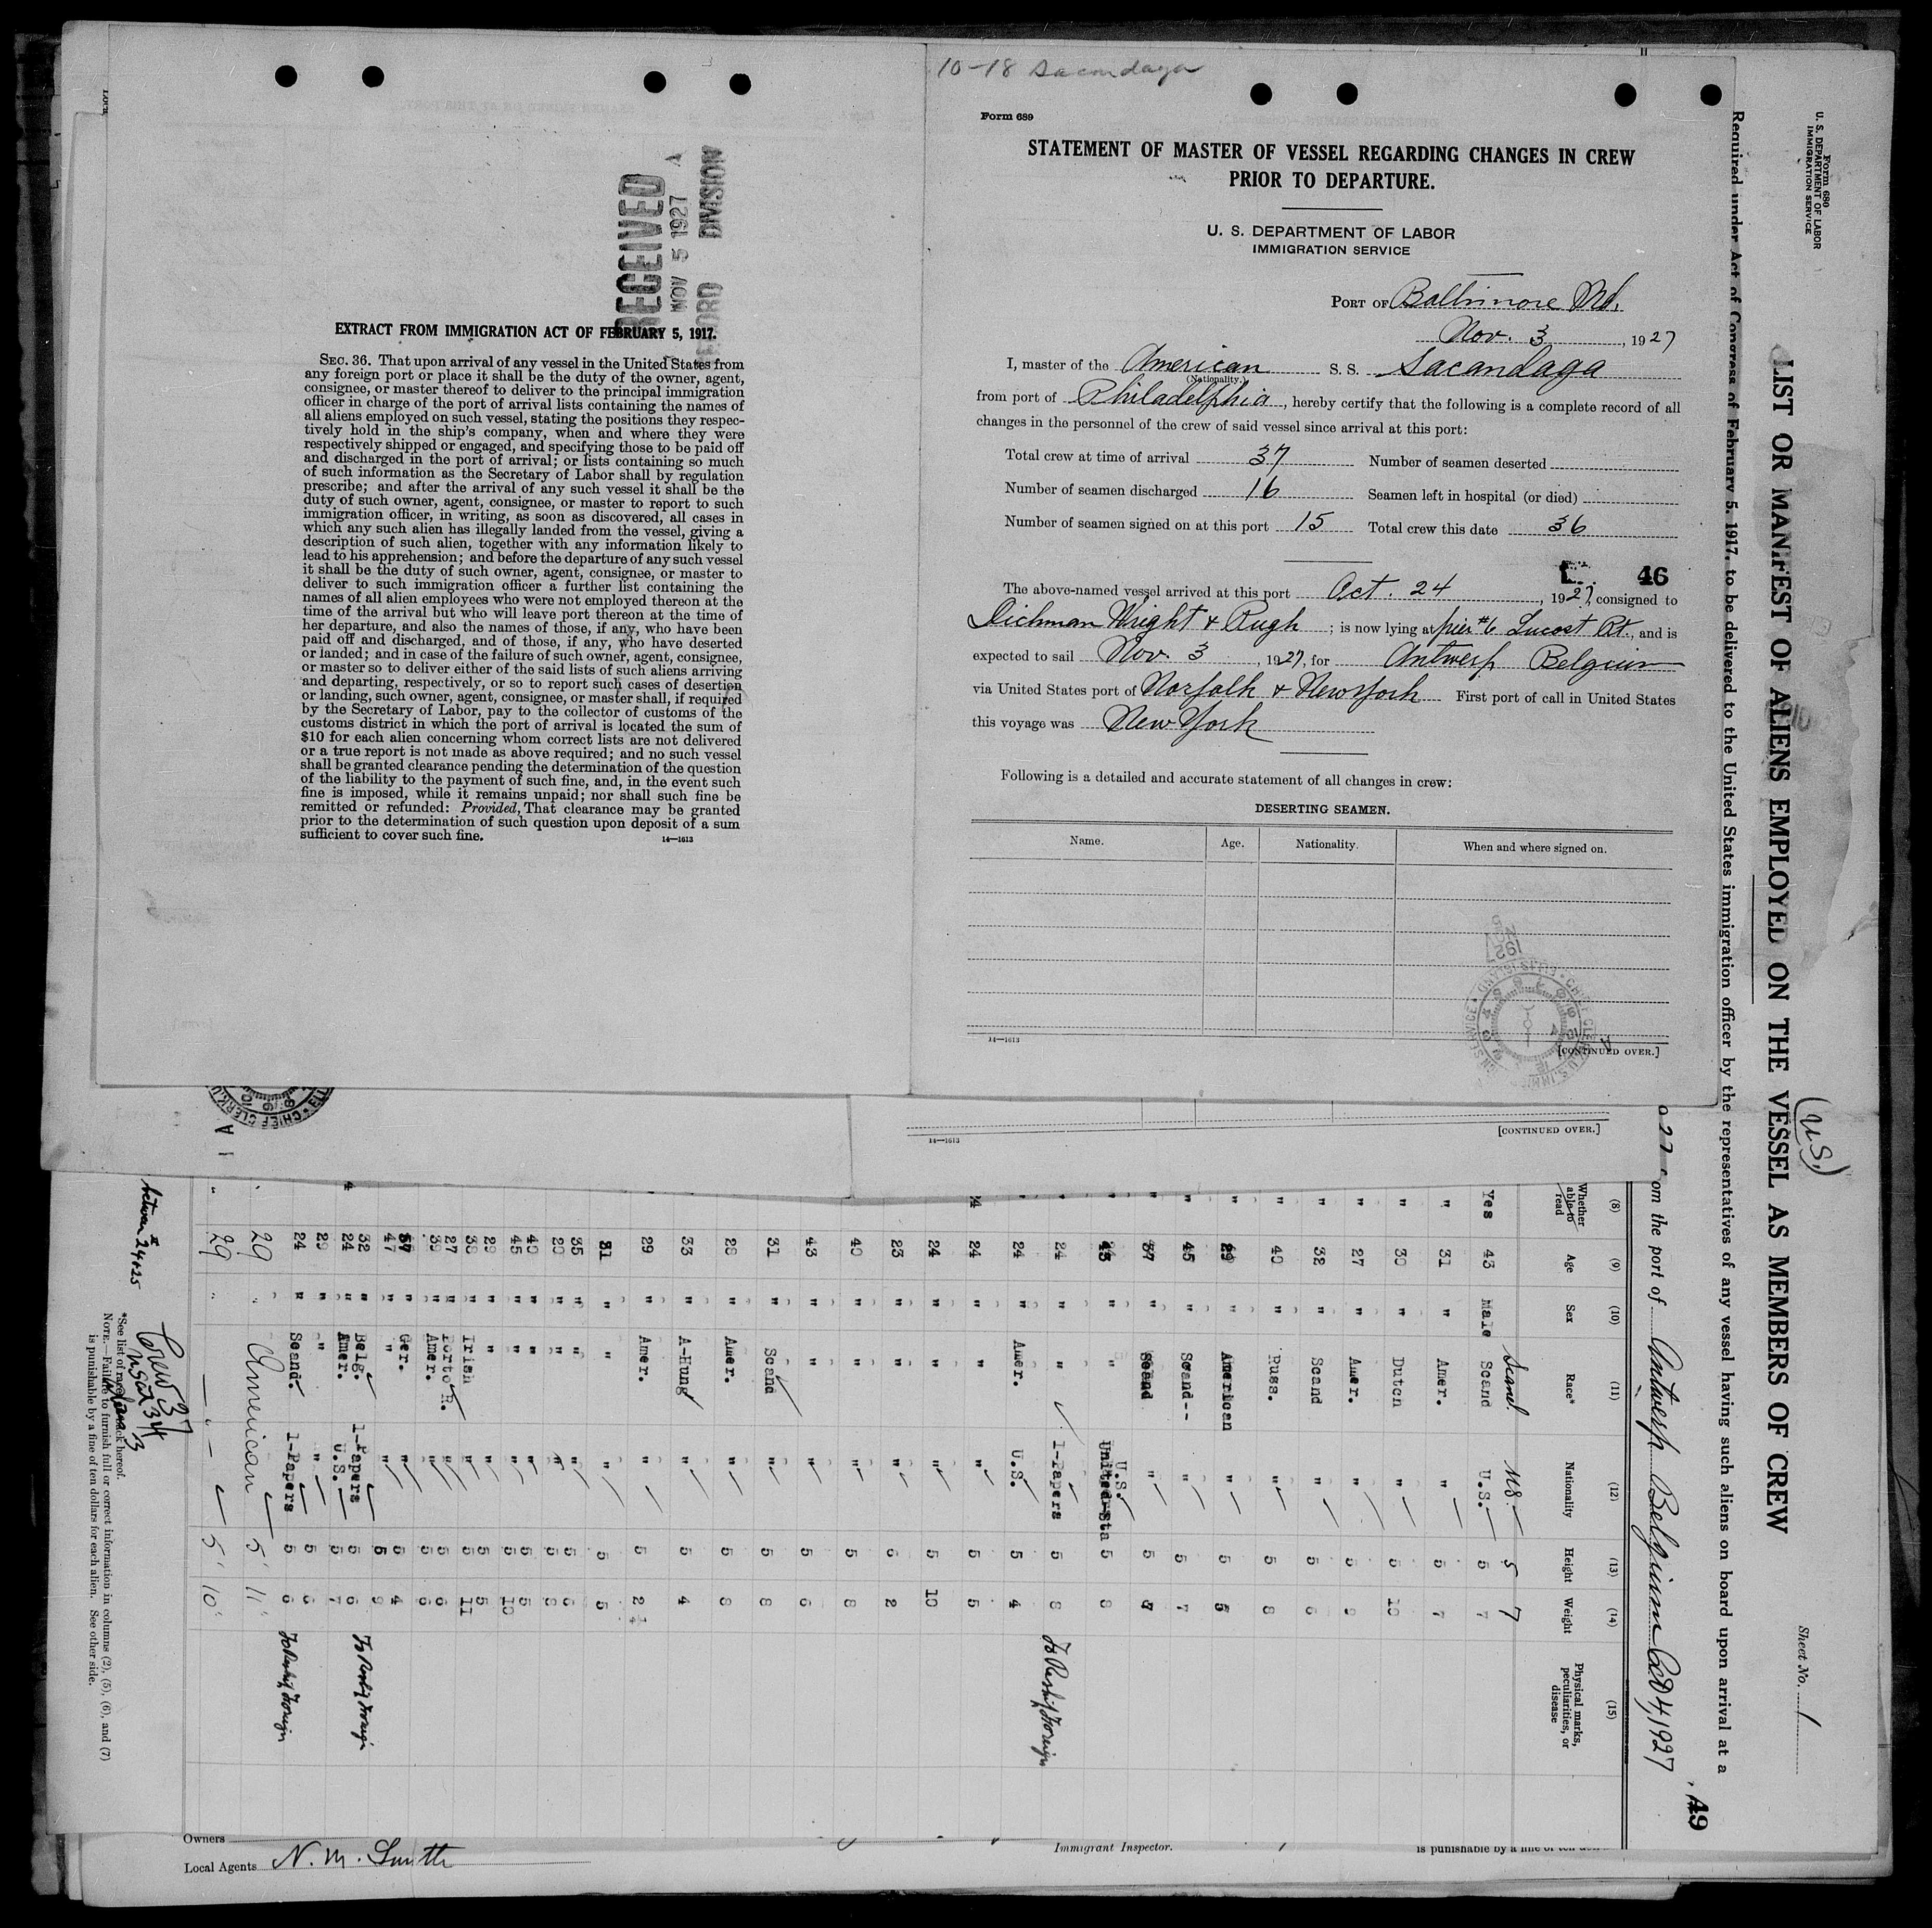 RECEIVED
NOV 5 1927 A
RECORD DIVISION
EXTRACT FROM IMMIGRATION ACT OF FEBRUARY 5, 1917.
SEC. 36. That upon arrival of any vessel in the United States from
any foreign port or place it shall be the duty of the owner, agent,
consignee, or master thereof to deliver to the principal immigration
officer in charge of the port of arrival lists containing the names of
all aliens employed on such vessel, stating the positions they respec-
tively hold in the ship's company, when and where they were
respectively shipped or engaged, and specifying those to be paid off
and discharged in the port of arrival; or lists containing so much
of such information as the Secretary of Labor shall by regulation
prescribe; and after the arrival of any such vessel it shall be the
duty of such owner, agent, consignee, or master to report to such
immigration officer, in writing, as soon as discovered, all cases in
which any such alien has illegally landed from the vessel, giving a
description of such alien, together with any information likely to
lead to his apprehension; and before the departure of any such vessel
it shall be the duty of such owner, agent, consignee, or master to
deliver to such immigration officer a further list containing the
names of all alien employees who were not employed thereon at the
time of the arrival but who will leave port thereon at the time of
her departure, and also the names of those, if any, who have been
paid off and discharged, and of those, if any, who have deserted
or landed; and in case of the failure of such owner, agent, consignee,
or master so to deliver either of the said lists of such aliens arriving
and departing, respectively, or so to report such cases of desertion
or landing, such owner, agent, consignee, or master shall, if required
by the Secretary of Labor, pay to the collector of customs of the
customs district in which the port of arrival is located the sum of
$10 for each alien concerning whom correct lists are not delivered
or a true report is not made as above required; and no such vessel
shall be granted clearance pending the determination of the question
of the liability to the payment of such fine, and, in the event such
fine is imposed, while it remains unpaid; nor shall such fine be
remitted or refunded: Provided, That clearance may be granted
prior to the determination of such question upon deposit of a sum
sufficient to cover such fine.
14—1613
10-18 Sacondaga
Form 689
STATEMENT OF MASTER OF VESSEL REGARDING CHANGES IN CREW
PRIOR TO DEPARTURE.
U. S. DEPARTMENT OF LABOR
IMMIGRATION SERVICE
PORT OF Baltimore Md.
Nov. 3, 1927
I, master of the American S. S. Sacandaga
(Nationality.)
from port of Philadelphia, hereby certify that the following is a complete record of all
changes in the personnel of the crew of said vessel since arrival at this port:
Total crew at time of arrival 37 Number of seamen deserted
Number of seamen discharged 16 Seamen left in hospital (or died)
Number of seamen signed on at this port 15 Total crew this date 36
46
The above-named vessel arrived at this port Oct. 24, 1927, consigned to
Dichman Wright & Pugh; is now lying at pier #6 Locust Pt., and is
expected to sail Nov. 3, 1927, for Antwerp Belgium
via United States port of Norfolk & New York First port of call in United States
this voyage was New York
Following is a detailed and accurate statement of all changes in crew:
DESERTING SEAMEN.
Name. Age. Nationality. When and where signed on.
14—1613
[CONTINUED OVER.]
14—1613
[CONTINUED OVER.]
Form 680
U. S. DEPARTMENT OF LABOR
IMMIGRATION SERVICE
(U.S.)
Sheet No. 1
LIST OR MANIFEST OF ALIENS EMPLOYED ON THE VESSEL AS MEMBERS OF CREW
Required under Act of Congress of February 5, 1917, to be delivered to the United States immigration officer by the representatives of any vessel having such aliens on board upon arrival at a
om the port of Antwerp Belgium Oct 4, 1927
49
(8) (9) (10) (11) (12) (13) (14) (15)
Whether able to read Age Sex Race* Nationality Height Weight Physical marks, peculiarities, or disease
Scand. U.S. 5 7
Yes 43 Male Scand U.S. 5 7
" 31 " Amer. " 5 7
" 30 " Dutch " 5 10
" 27 " Amer. " 5 9
" 32 " Scand " 5 6
" 40 " Russ. " 5 8
" 29 " American " 5 5
" 45 " Scand-- " 5 7
" 37 " Scand " 5 7
" 43 " " U.S. 5 8
" 24 " " 1-Papers 5 8 To Reship Foreign
" 24 " Amer. U.S. 5 4
24 " " " 5 5
24 " " " 5 10
23 " " " 6 2
40 " " " 5 8
43 " " " 5 6
31 " Scand " 5 8
28 " Amer. " 5 8
33 " A-Hung " 5 4
29 " Amer. " 5 2½
31 " " " 5 5
35 " " " 5 6
20 " " " 5 8
40 " " " 5 5
45 " " " 5 10
29 " " " 5 5
38 " Irish " 5 11
27 " Porto R. " 5 6
39 " Amer. " 5 6
37 " Ger. " 5 4
47 " " " 5 9
32 " Belg. 1-Papers 5 6 To Reship Foreign
24 " Amer. U.S. 5 7
29 " " " 5 6
24 " Scand. 1-Papers 5 6 To Reship Foreign
29 " American 5' 11"
29 " " 5' 10"
between 24 & 25
Crew 37
USC 34
aliens 3
*See list of races on back hereof.
NOTE.—Failure to furnish full or correct information in columns (2), (5), (6), and (7)
is punishable by a fine of ten dollars for each alien. See other side.
Owners
Local Agents N. M. Smith
Immigrant Inspector.